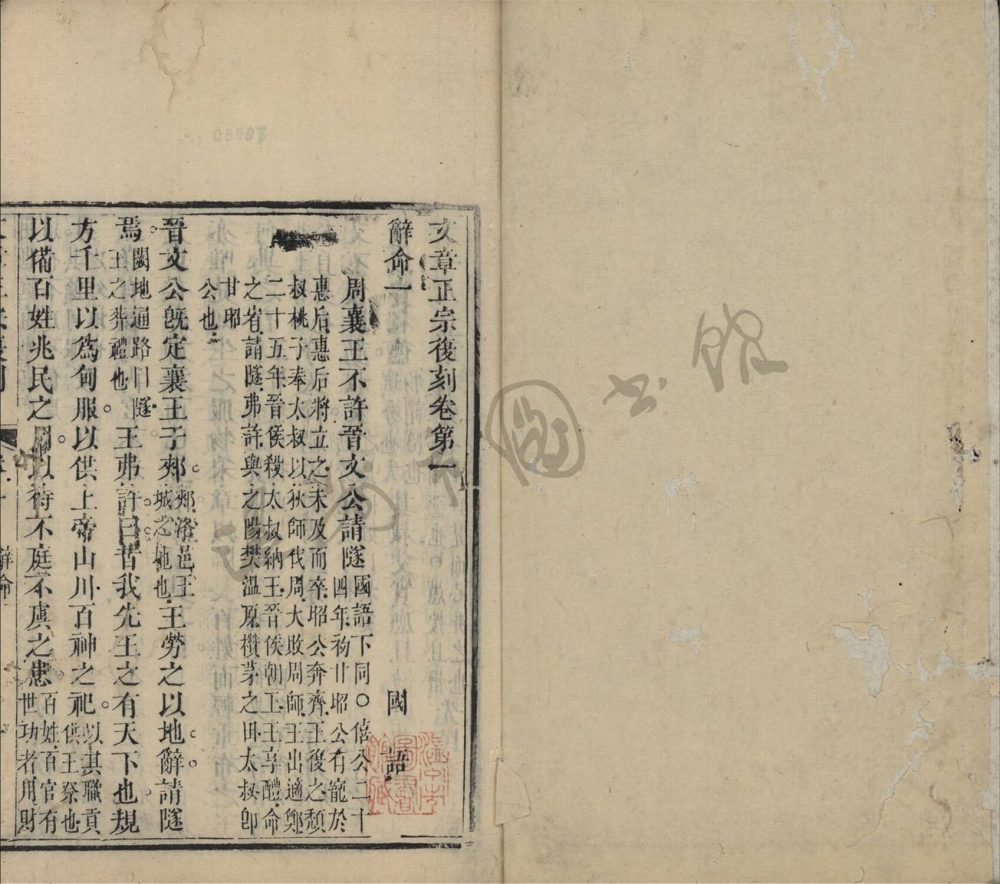 文章正宗復刻卷第一
辭命一 國語
周襄王不許晉文公請隧國語下同○僖公二十
四年初甘昭公有寵於
惠后惠后將立之未及而卒昭公奔齊王復之頹
叔桃子奉太叔以狄師伐周大敗周師王出適鄭
二十五年晉侯殺太叔納王晉侯朝王王享醴命
之宥請隧弗許與之陽樊溫原攢茅之田太叔卽
甘昭
公也
晉文公旣定襄王于郟郟洛邑王
城之地也王勞之以地辭請隧
焉闕地通路曰隧
王之葬禮也王弗許曰昔我先王之有天下也規
方千里以爲甸服以供上帝山川百神之祀以其職貢
供王祭也
以備百姓兆民之用以待不庭不虞之患百姓百官有
世功者用財
辭命
08907